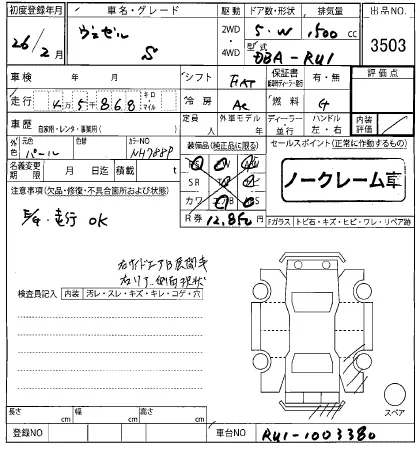 初度登録年月 車名・グレード 駆動 ドア数・形状 排気量 出品NO.
26/2月 ヴェゼル S 2WD 4WD 5.W 1,500 cc 3503
型式 DBA-RU1
車検 年 月 シフト FAT 保証書 有・無 評価点
走行 5868 キロ マイル 冷房 AC 燃料 G
車歴 自家用・レンタ・事業用( ) 定員 人 外車モデル 年 ディーラー 並行 ハンドル 左・右 内装評価
外色 元色 パール 色替 カラーNO NH788P 装備品(純正品に限る) セールスポイント(正常に動作するもの)
名義変更期限 月 日迄 積載 t SR ノークレーム車
注意事項(欠品・修復・不具合箇所および状態) カワ
走行 OK R券 12,850 Fガラス トビ石・キズ・ヒビ・ワレ・リペア跡
検査員記入 内装 汚レ・スレ・キズ・キレ・コゲ・穴
スペア
長さ cm 幅 cm 高さ cm
登録NO 車台NO RU1-1003380